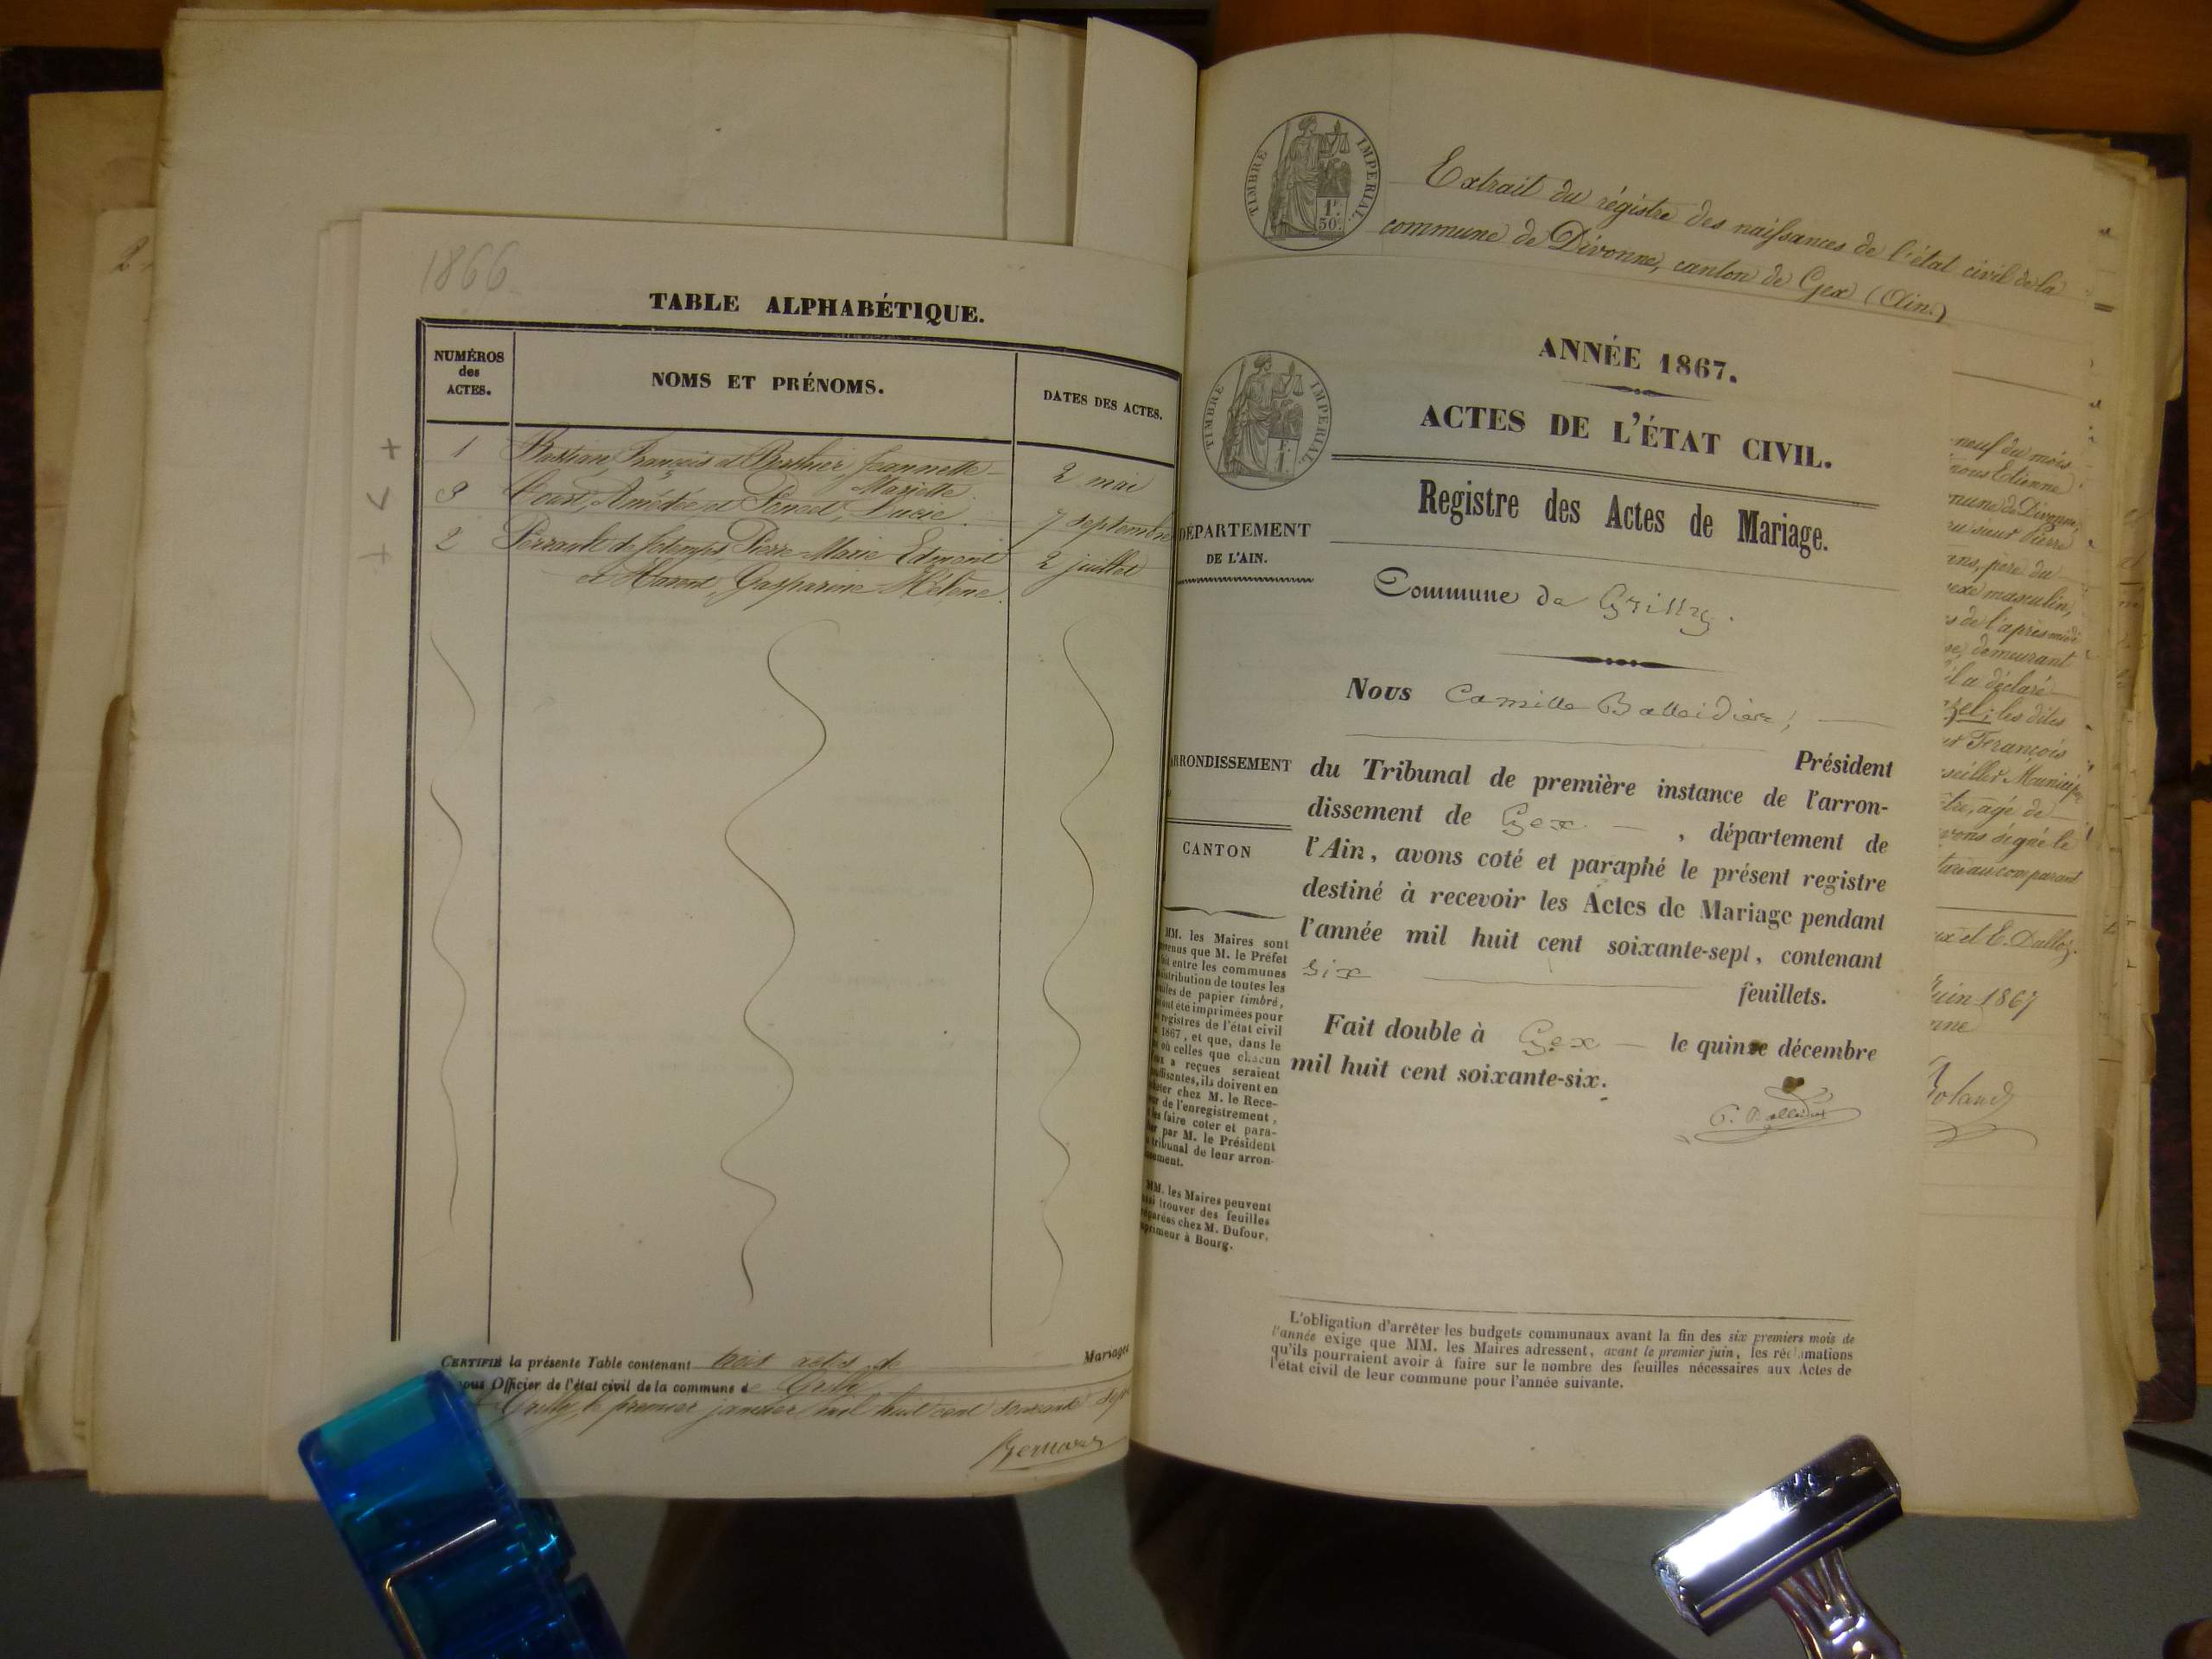 1866
TABLE ALPHABÉTIQUE.
NUMÉROS
des
ACTES.
NOMS ET PRÉNOMS.
DATES DES ACTES.
1 Bastian, François et Berthier, Jeannette-
Mariette. 2 mai
3 Court, Amédée et Poncet, Lucie. 7 septembre
2 Perrault de Jotemps, Pierre-Marie-Edmond 2 juillet
et Gasparine-Hélène.
CERTIFIÉ la présente Table contenant trois actes de Mariages
nous Officier de l'état civil de la commune de Grilly
Grilly, le premier janvier mil huit cent soixante sept
TIMBRE IMPERIAL
1F.
50C.
Extrait du régistre des naissances de l'état civil de la
commune de Divonne, canton de Gex (Ain.)
TIMBRE IMPERIAL
ANNÉE 1867.
ACTES DE L'ÉTAT CIVIL.
Registre des Actes de Mariage.
DÉPARTEMENT
DE L'AIN.
Commune de Grilly.
Nous Camille Balleidier,
Président
ARRONDISSEMENT
du Tribunal de première instance de l'arron-
dissement de Gex, département de
CANTON
l'Ain, avons coté et paraphé le présent registre
destiné à recevoir les Actes de Mariage pendant
l'année mil huit cent soixante-sept, contenant
six feuillets.
Fait double à Gex le quinze décembre
mil huit cent soixante-six.
C. Balleidier
MM. les Maires sont
prévenus que M. le Préfet
fait entre les communes
distribution de toutes les
feuilles de papier timbré,
qui ont été imprimées pour
registres de l'état civil
1867, et que, dans le
où celles que chacun
a reçues seraient
insuffisantes, ils doivent en
acheter chez M. le Rece-
veur de l'enregistrement,
les faire coter et para-
pher par M. le Président
tribunal de leur arron-
dissement.
MM. les Maires peuvent
aussi trouver des feuilles
préparées chez M. Dufour,
imprimeur à Bourg.
L'obligation d'arrêter les budgets communaux avant la fin des six premiers mois de
l'année exige que MM. les Maires adressent, avant le premier juin, les réclamations
qu'ils pourraient avoir à faire sur le nombre des feuilles nécessaires aux Actes de
l'état civil de leur commune pour l'année suivante.
neuf du mois
nous Etienne
de Divonne,
sieur Pierre
père du
sexe masculin,
de l'après midi
demeurant
il a déclaré
les dites
François
Municip
âgé de
signé le
au comparant
et E. Dalloz.
Juin 1867